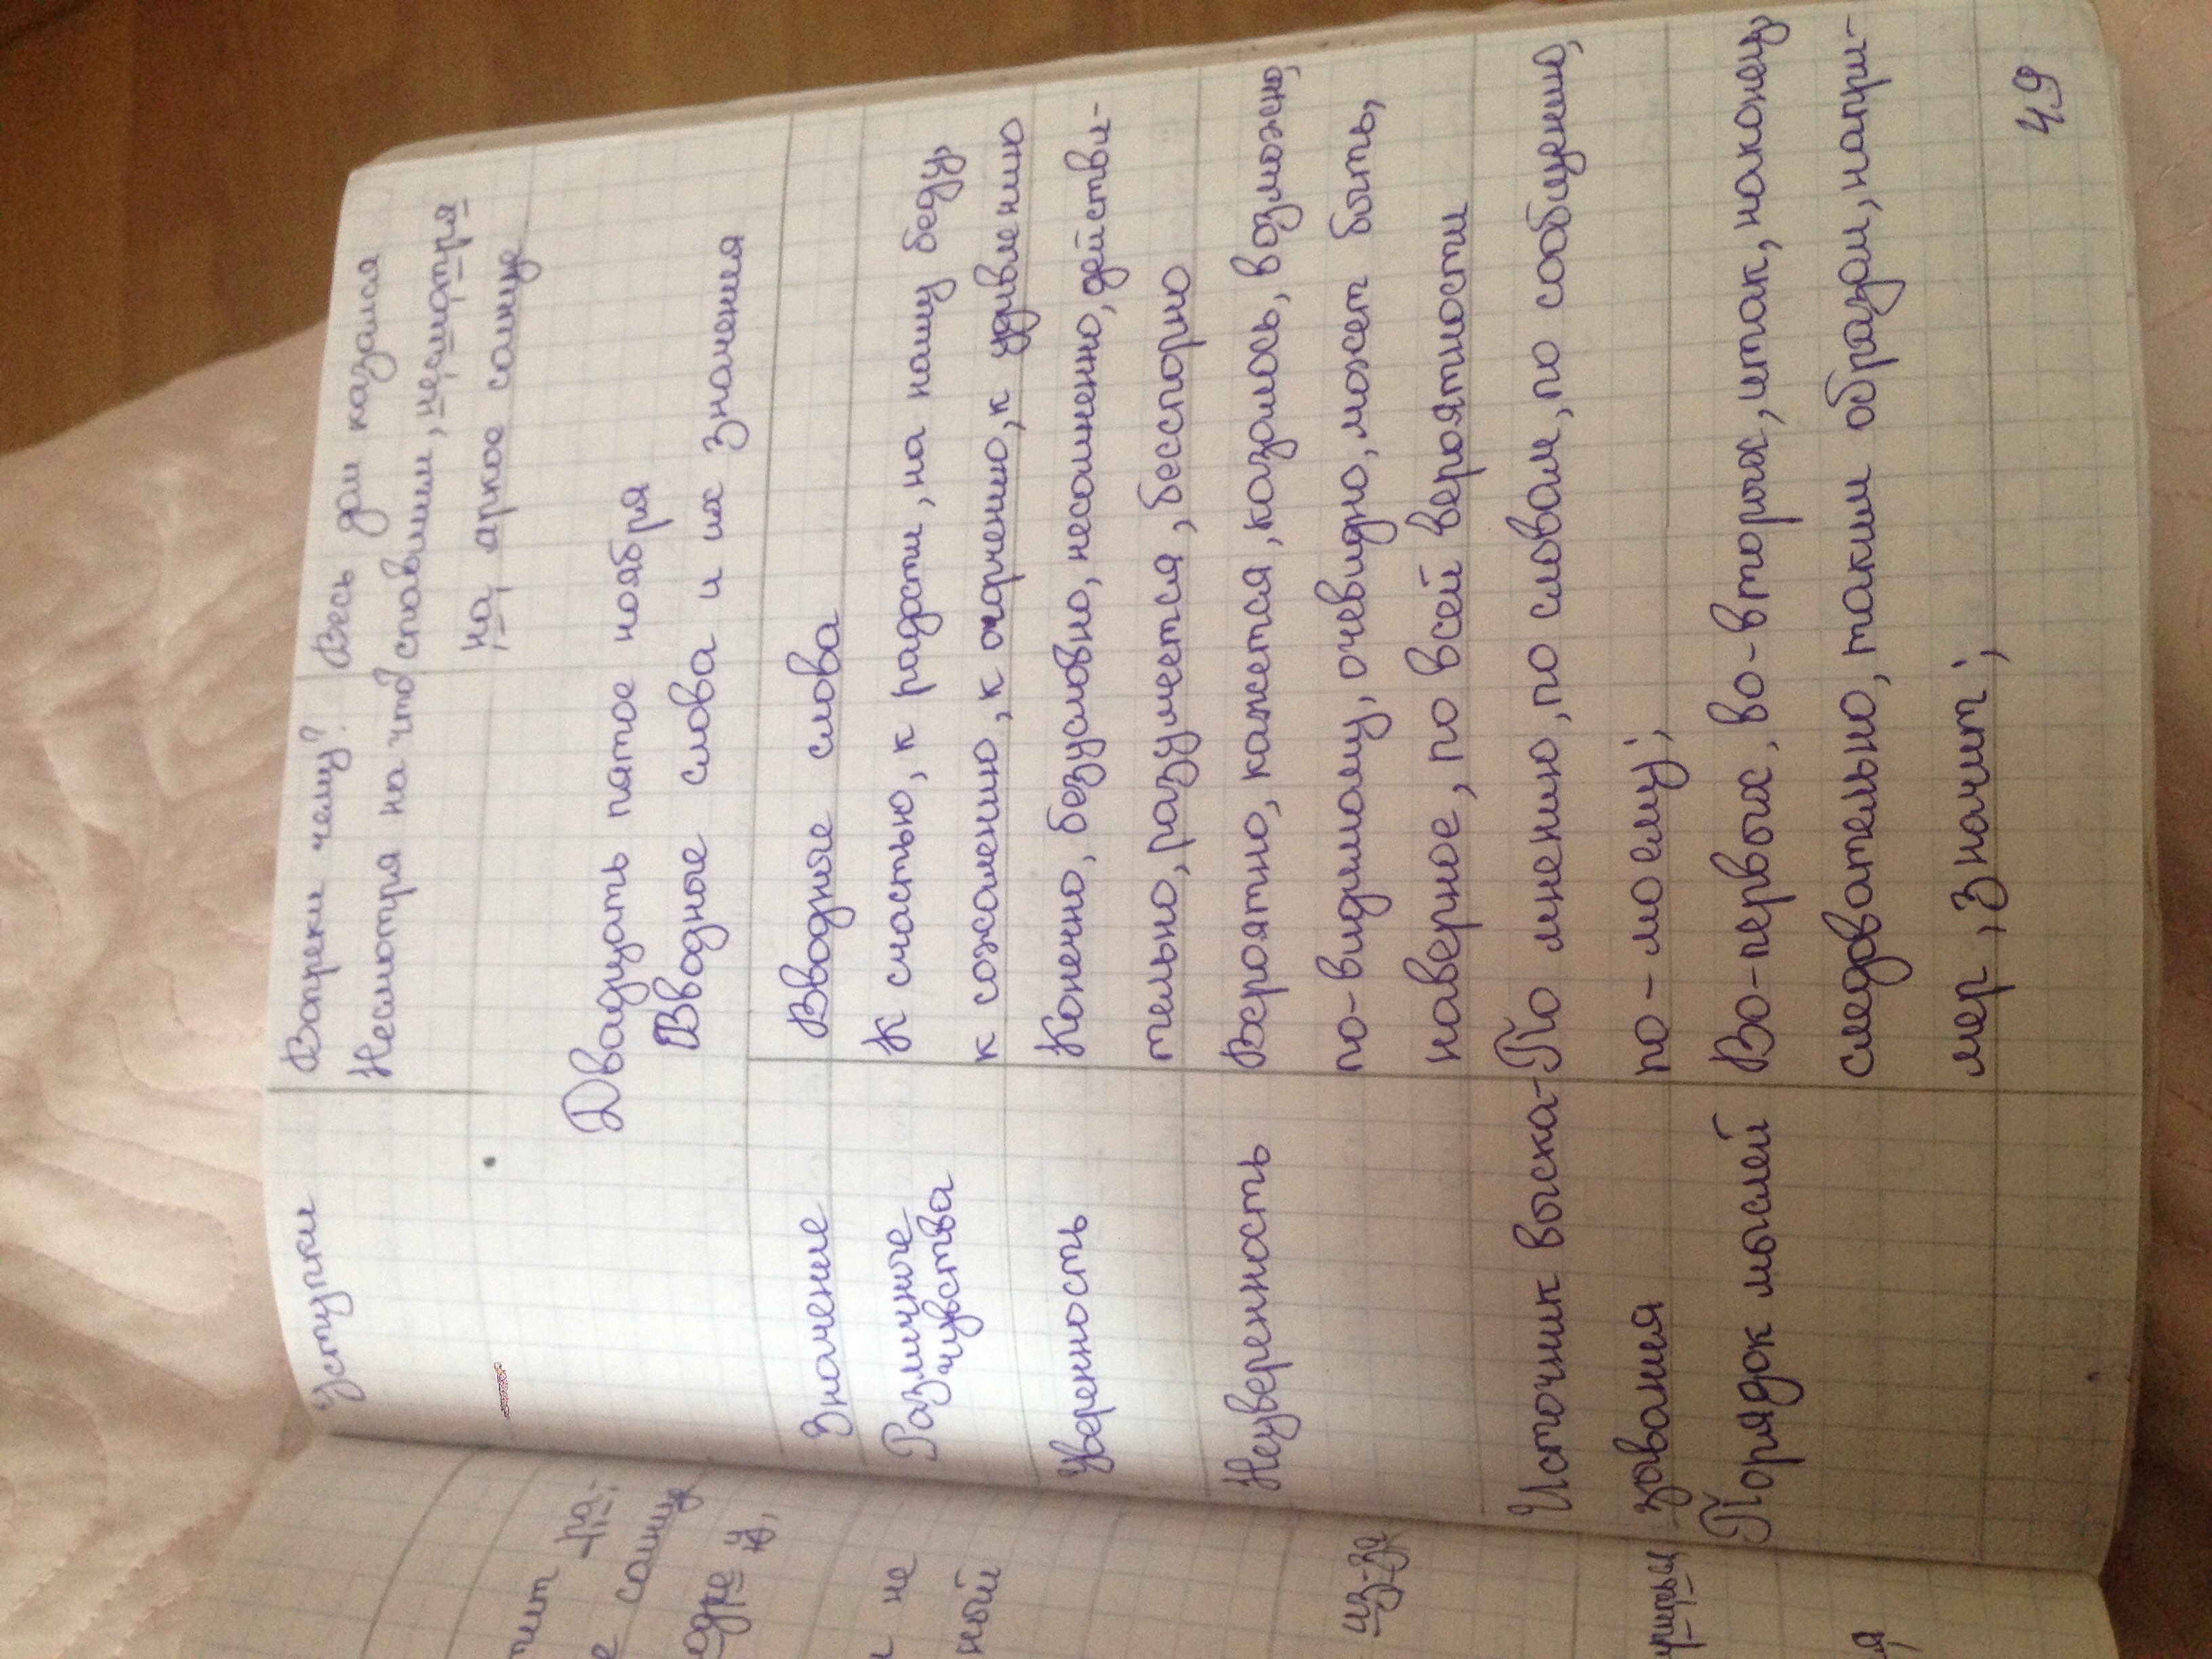 Уступки Вопреки чему? Весь дом казался
Несмотря на что? спавшим, несмотря
на, яркое солнце
Двадцать пятое ноября
Вводные слова и их значения
Значение Вводные слова
Различные К счастью, к радости, на нашу беду,
чувства к сожалению, к огорчению, к удивлению
Уверенность Конечно, безусловно, несомненно, действи-
тельно, разумеется, бесспорно
Неуверенность Вероятно, кажется, казалось, возможно,
по-видимому, очевидно, может быть,
наверное, по всей вероятности
Источник выска- По мнению, по словам, по сообщению,
зования по-моему;
Порядок мыслей Во-первых, во-вторых, итак, наконец
следовательно, таким образом, напри-
мер, значит;
49
е солнце
не
ной
из-за